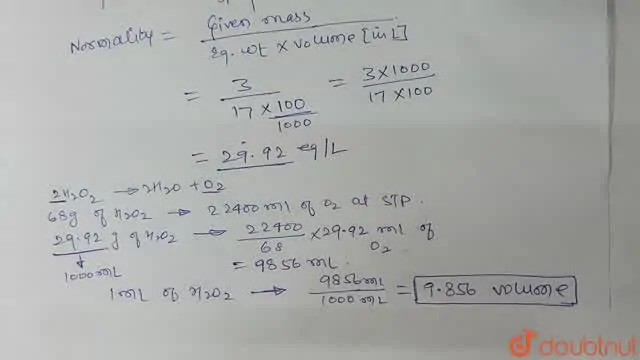 Normality = Given mass / Eq. wt × volume [in L]
= 3 / 17 × 100/1000 = 3×1000 / 17×100
= 29.92 eq/L
2H2O2 → 2H2O + O2
68g of H2O2 → 22400 ml of O2 at STP.
29.92 g of H2O2 → 22400/68 × 29.92 ml of O2
↓
1000mL
= 9856 mL
1mL of H2O2 → 9856ml / 1000mL = 9.856 volume
doubtnut